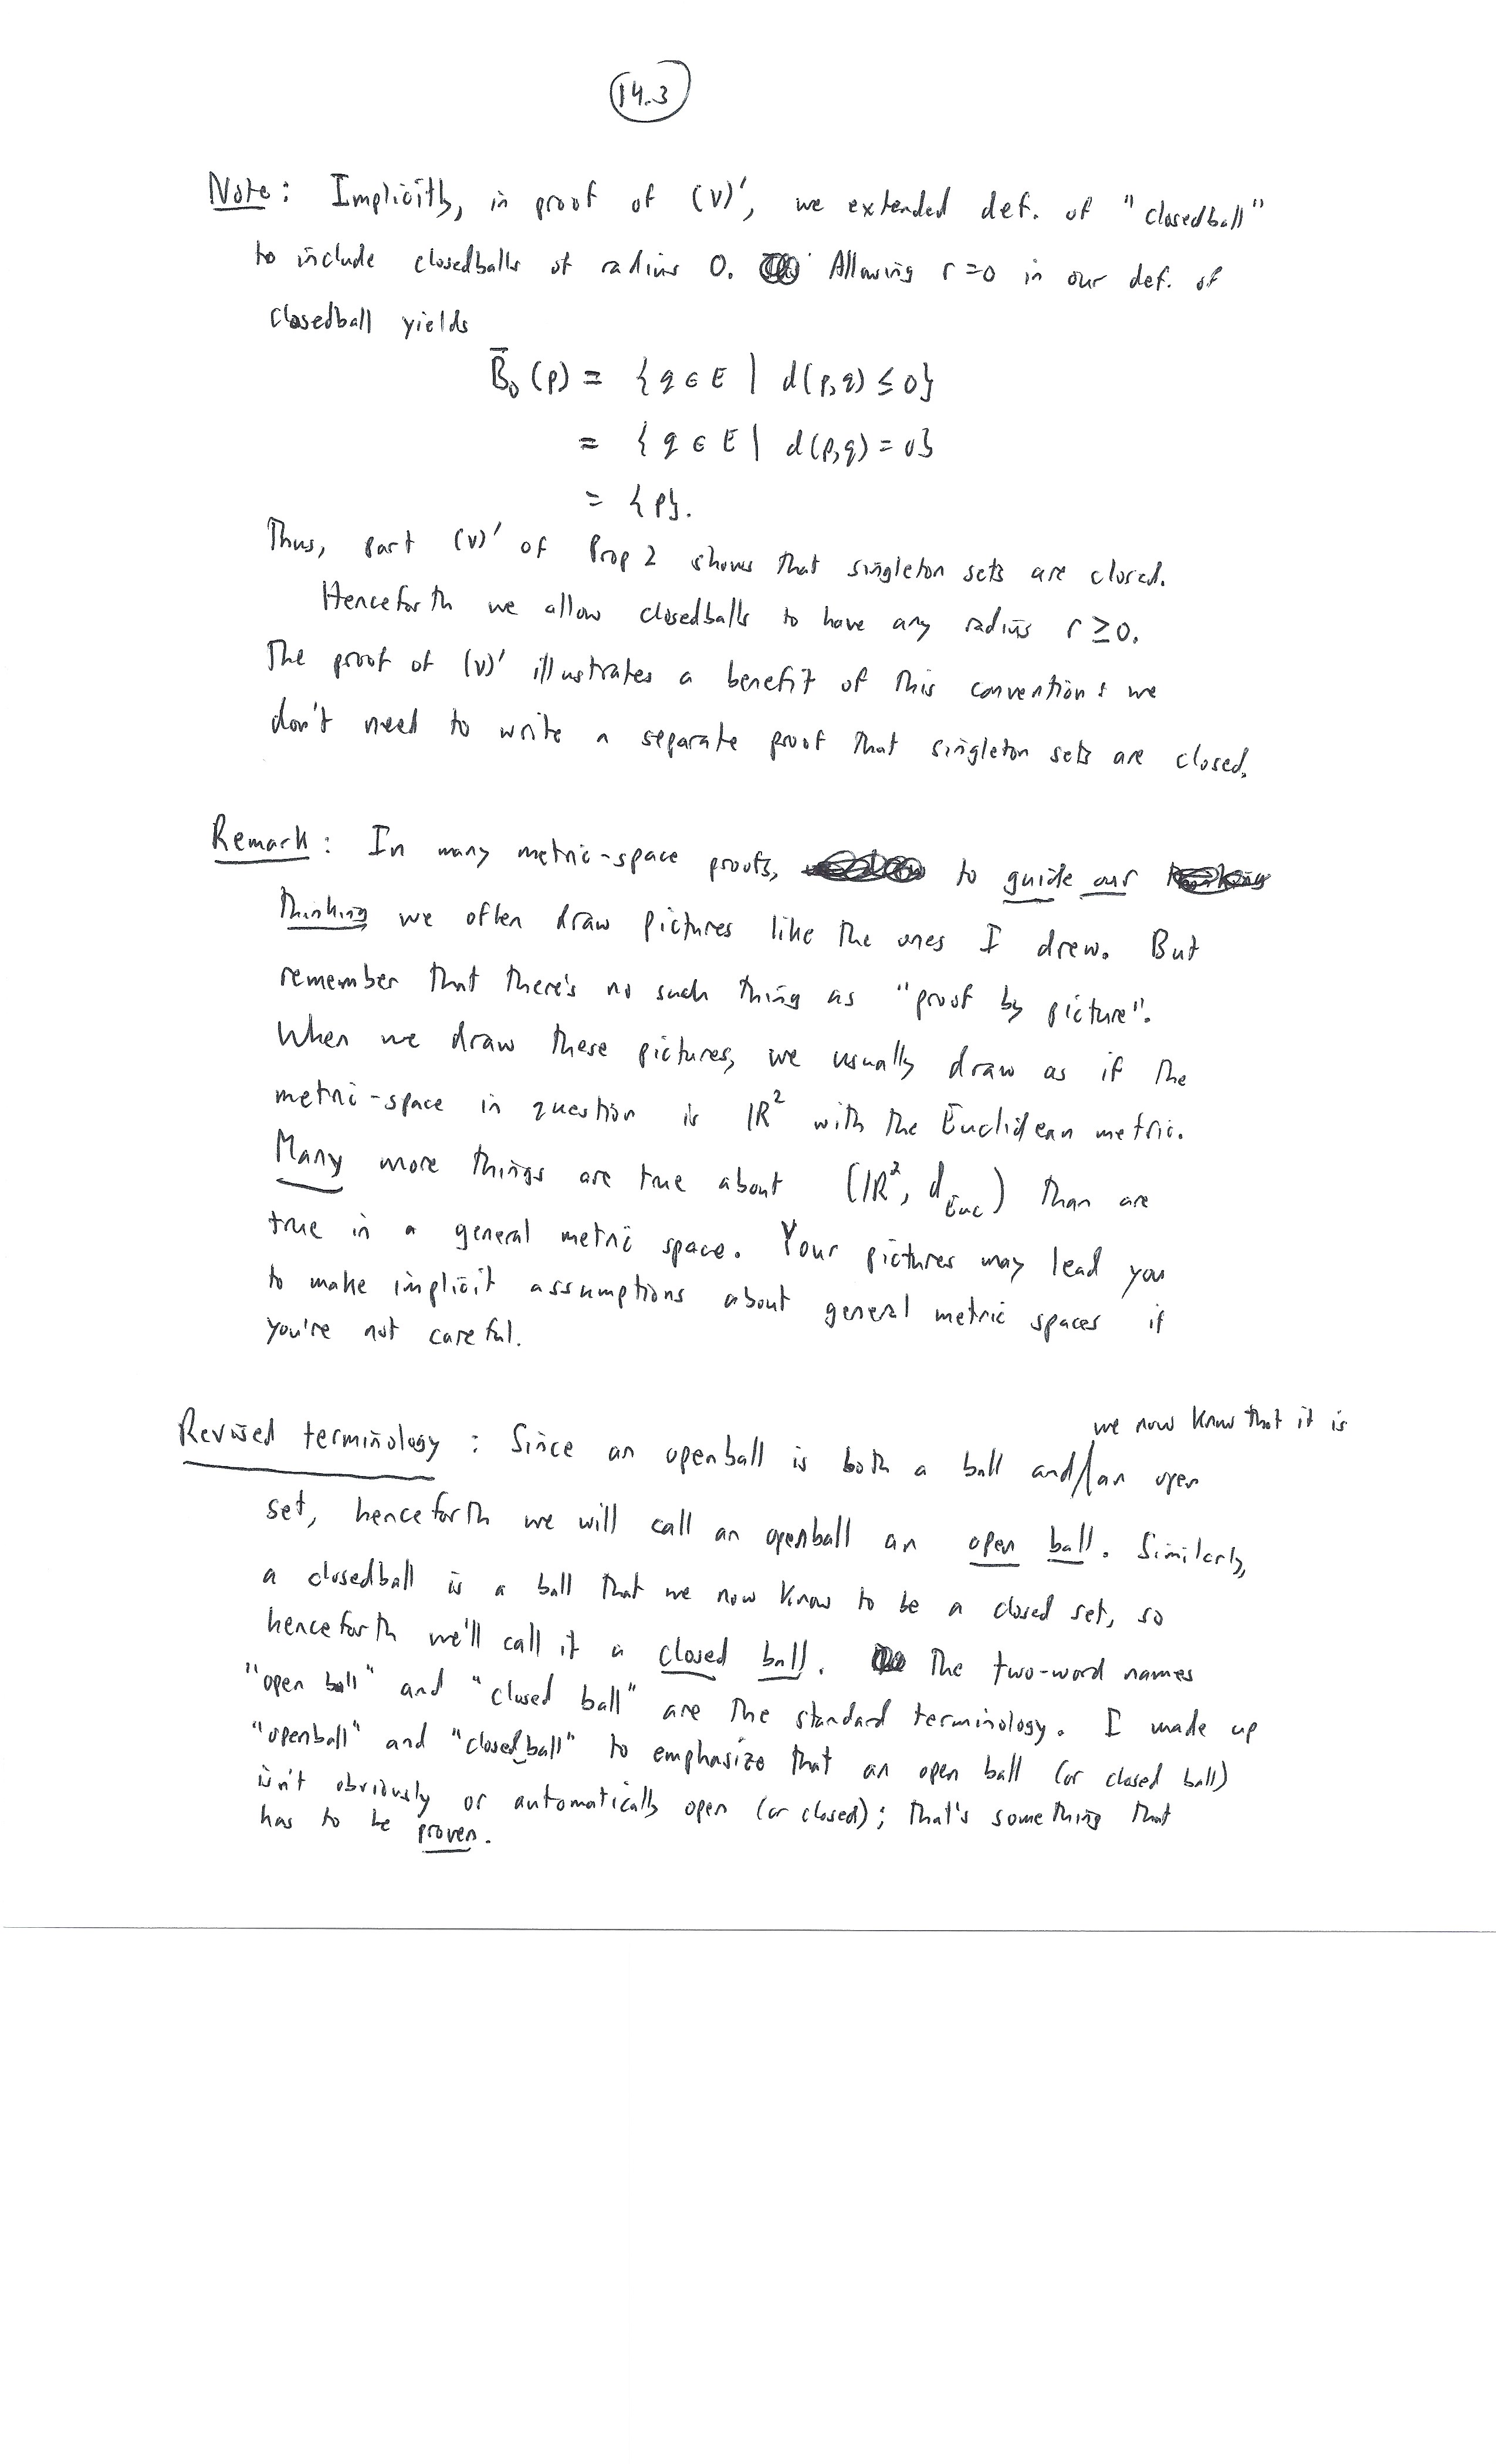 14.3
Note: Implicitly, in proof of (v)', we extended def. of "closedball"
to include closedballs of radius 0. Allowing r=0 in our def. of
closedball yields
B̄₀(p) = {q ∈ E | d(p,q) ≤ 0}
= {q ∈ E | d(p,q) = 0}
= {p}.
Thus, part (v)' of Prop 2 shows that singleton sets are closed.
Henceforth we allow closedballs to have any radius r ≥ 0.
The proof of (v)' illustrates a benefit of this convention: we
don't need to write a separate proof that singleton sets are closed.
Remark: In many metric-space proofs, to guide our
thinking we often draw pictures like the ones I drew. But
remember that there's no such thing as "proof by picture".
When we draw these pictures, we usually draw as if the
metric-space in question is ℝ² with the Euclidean metric.
Many more things are true about (ℝ², d_Euc) than are
true in a general metric space. Your pictures may lead you
to make implicit assumptions about general metric spaces if
you're not careful.
we now know that it is
Revised terminology: Since an openball is both a ball and/an open
set, henceforth we will call an openball an open ball. Similarly,
a closedball is a ball that we now know to be a closed set, so
henceforth we'll call it a closed ball. The two-word names
"open ball" and "closed ball" are the standard terminology. I made up
"openball" and "closedball" to emphasize that an open ball (or closed ball)
isn't obviously or automatically open (or closed); that's something that
has to be proven.